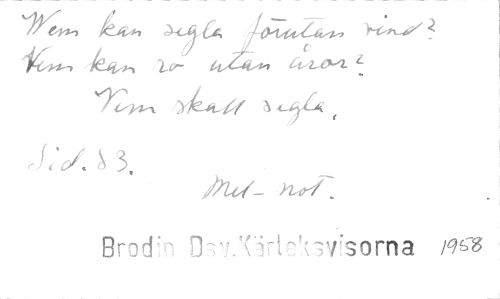 Wem kan segla förutan vind?
Vem kan ro utan åror?
Vem skall segla.
Sid. 83.
Mel-not.
Brodin Dsv. Kärleksvisorna 1958